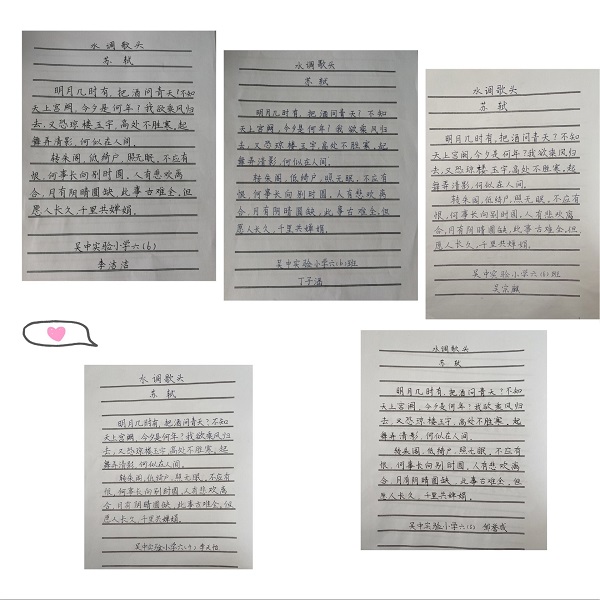 水调歌头
苏轼
明月几时有,把酒问青天?不知
天上宫阙,今夕是何年?我欲乘风归
去,又恐琼楼玉宇,高处不胜寒,起
舞弄清影,何似在人间。
转朱阁,低绮户,照无眠,不应有
恨,何事长向别时圆,人有悲欢离
合,月有阴晴圆缺,此事古难全,但
愿人长久,千里共婵娟。
吴中实验小学六(6)
李洁洁
水调歌头
苏轼
明月几时有,把酒问青天?不知
天上宫阙,今夕是何年?我欲乘风归
去,又恐琼楼玉宇,高处不胜寒,起
舞弄清影,何似在人间。
转朱阁,低绮户,照无眠,不应有
恨,何事长向别时圆,人有悲欢
离合,月有阴晴圆缺,此事古难全,但
愿人长久,千里共婵娟。
吴中实验小学六(6)班
丁子涵
水调歌头
苏轼
明月几时有,把酒问青天?不知
天上宫阙,今夕是何年?我欲乘风归
去,又恐琼楼玉宇,高处不胜寒,起
舞弄清影,何似在人间。
转朱阁,低绮户,照无眠,不应有
恨,何事长向别时圆,人有悲欢离
合,月有阴晴圆缺,此事古难全,但
愿人长久,千里共婵娟。
吴中实验小学六(6)班
吴宗
水调歌头
苏轼
明月几时有,把酒问青天?不知
天上宫阙,今夕是何年?我欲乘风归
去,又恐琼楼玉宇,高处不胜寒,起
舞弄清影,何似在人间。
转朱阁,低绮户,照无眠,不应有
恨,何事长向别时圆,人有悲欢离
合,月有阴晴圆缺,此事古难全,但
愿人长久,千里共婵娟。
吴中实验小学六 李天怡
水调歌头
苏轼
明月几时有,把酒问青天?不知
天上宫阙,今夕是何年?我欲乘风归
去,又恐琼楼玉宇,高处不胜寒,起
舞弄清影,何似在人间。
转朱阁,低绮户,照无眠,不应有
恨,何事长向别时圆,人有悲欢离
合,月有阴晴圆缺,此事古难全,但
愿人长久,千里共婵娟。
吴中实验小学六